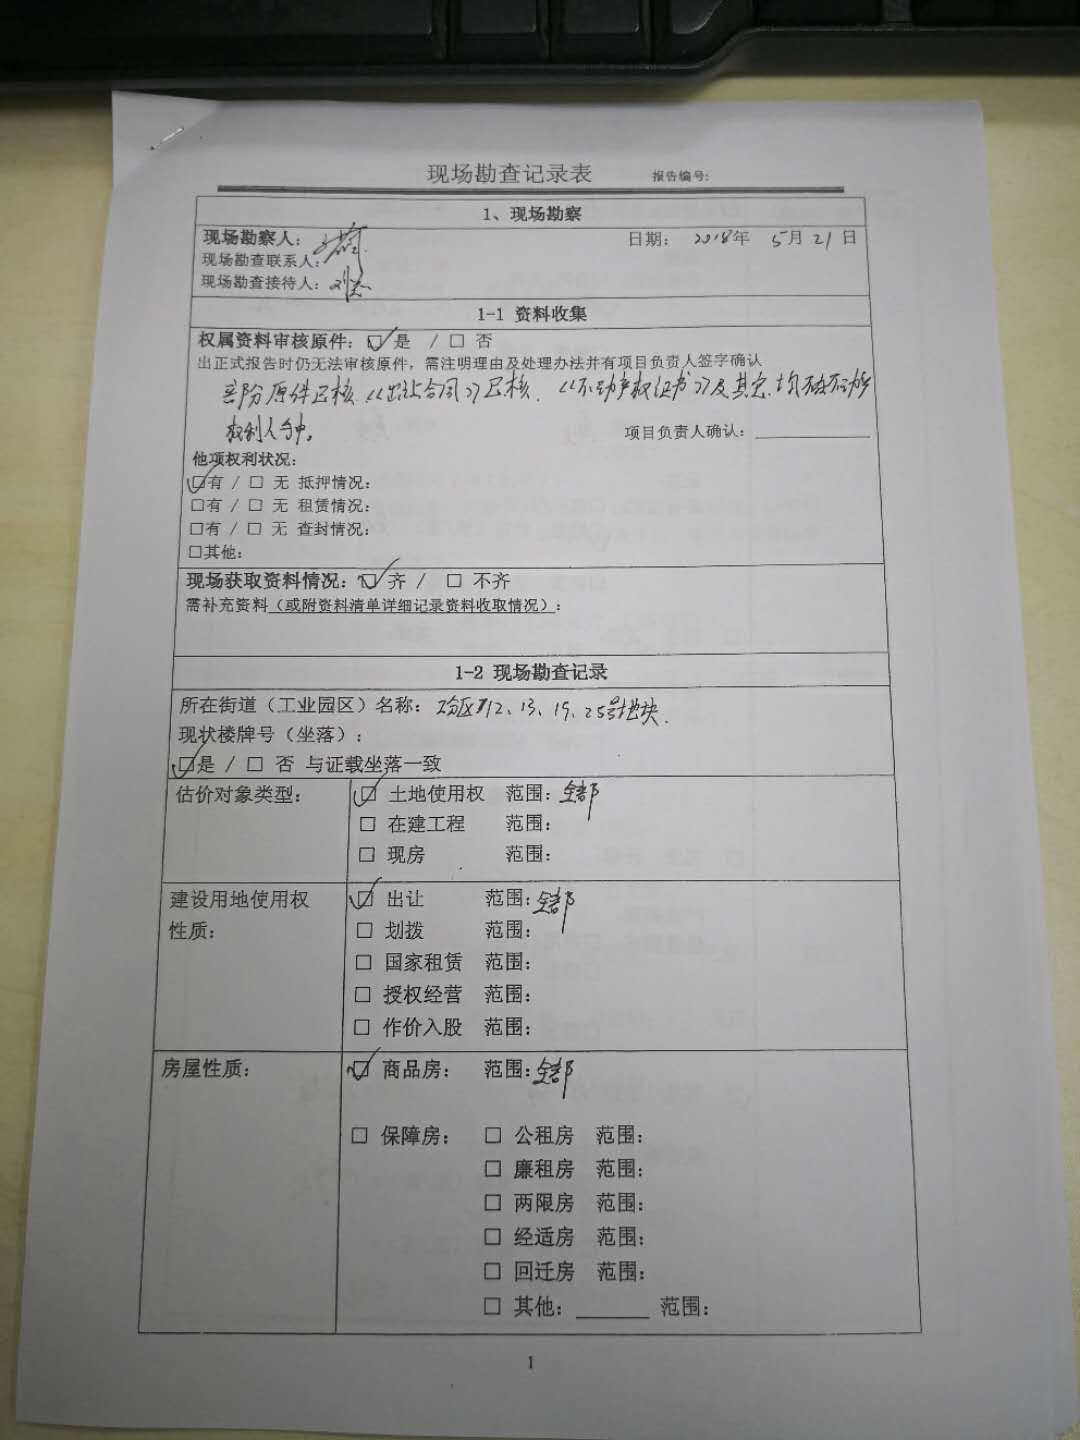 现场勘查记录表 报告编号:
1、现场勘察
现场勘察人: 日期: 2018年 5月21日
现场勘查联系人:
现场勘查接待人: 刘
1-1 资料收集
权属资料审核原件: ☑ 是 / □ 否
出正式报告时仍无法审核原件，需注明理由及处理办法并有项目负责人签字确认
部份原件已核《出让合同》已核、《不动产权证书》及其它均
权利人手中。 项目负责人确认:
他项权利状况:
☑有 / □ 无 抵押情况:
□有 / □ 无 租赁情况:
□有 / □ 无 查封情况:
□其他:
现场获取资料情况: ☑ 齐 / □ 不齐
需补充资料(或附资料清单详细记录资料收取情况):
1-2 现场勘查记录
所在街道（工业园区）名称: 12、13、19、25号地块.
现状楼牌号（坐落）:
☑是 / □ 否 与证载坐落一致
估价对象类型: ☑ 土地使用权 范围: 全部
□ 在建工程 范围:
□ 现房 范围:
建设用地使用权 ☑ 出让 范围: 全部
性质: □ 划拨 范围:
□ 国家租赁 范围:
□ 授权经营 范围:
□ 作价入股 范围:
房屋性质: ☑ 商品房: 范围: 全部
□ 保障房: □ 公租房 范围:
□ 廉租房 范围:
□ 两限房 范围:
□ 经适房 范围:
□ 回迁房 范围:
□ 其他: 范围:
1